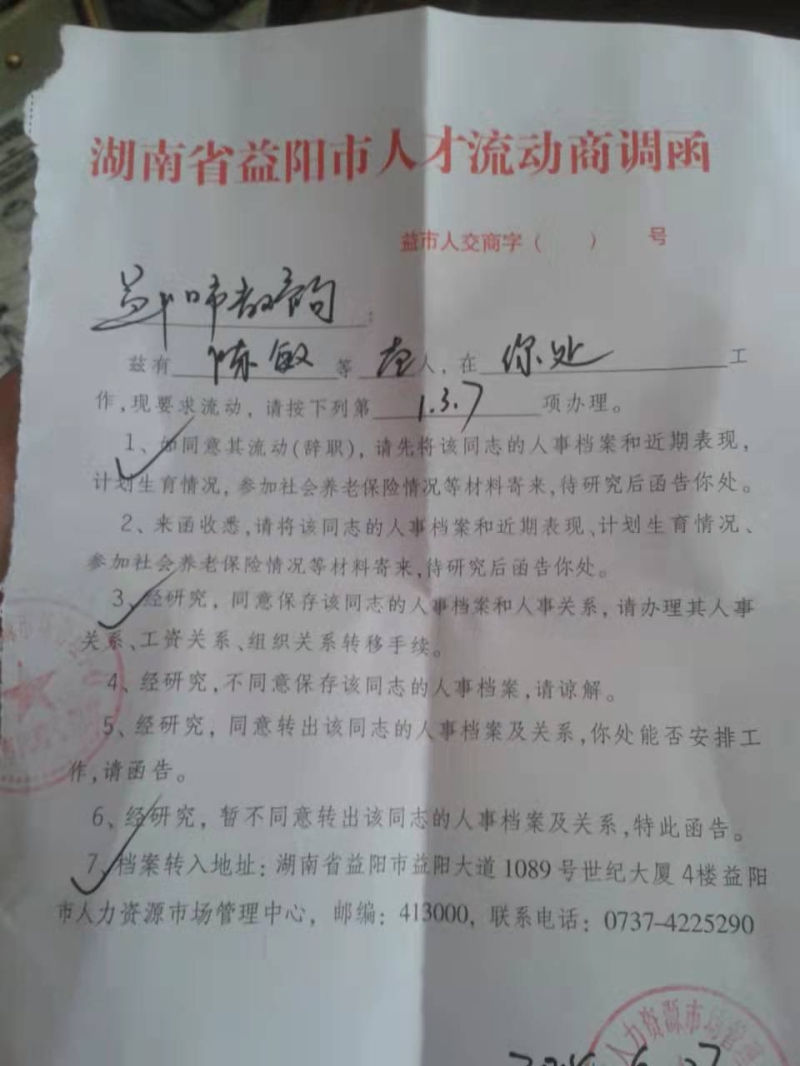 湖南省益阳市人才流动商调函
益市人交商字（ ） 号
益阳市教育局：
兹有 陈敏 等 壹 人，在 你处 工
作，现要求流动，请按下列第 1.3.7 项办理。
1、如同意其流动(辞职)，请先将该同志的人事档案和近期表现，
计划生育情况，参加社会养老保险情况等材料寄来，待研究后函告你处。
2、来函收悉，请将该同志的人事档案和近期表现、计划生育情况、
参加社会养老保险情况等材料寄来，待研究后函告你处。
3、经研究，同意保存该同志的人事档案和人事关系，请办理其人事
关系、工资关系、组织关系转移手续。
4、经研究，不同意保存该同志的人事档案，请谅解。
5、经研究，同意转出该同志的人事档案及关系，你处能否安排工
作，请函告。
6、经研究，暂不同意转出该同志的人事档案及关系，特此函告。
7、档案转入地址：湖南省益阳市益阳大道1089号世纪大厦4楼益阳
市人力资源市场管理中心，邮编：413000，联系电话：0737-4225290
人力资源市场管